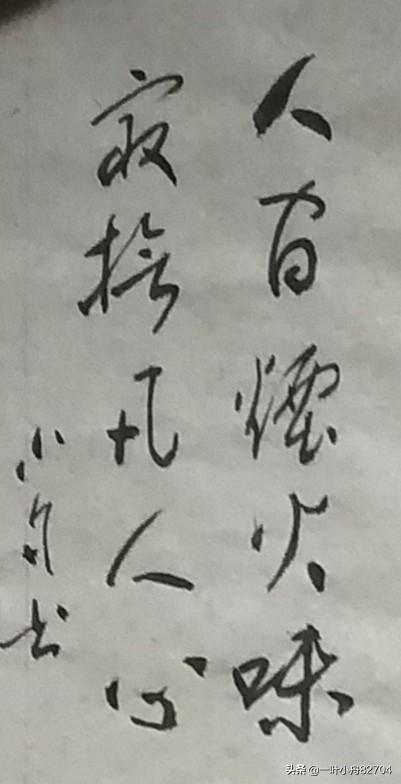 人間煙火味
最撫凡人心
小舟书
头条 @一叶小舟82704